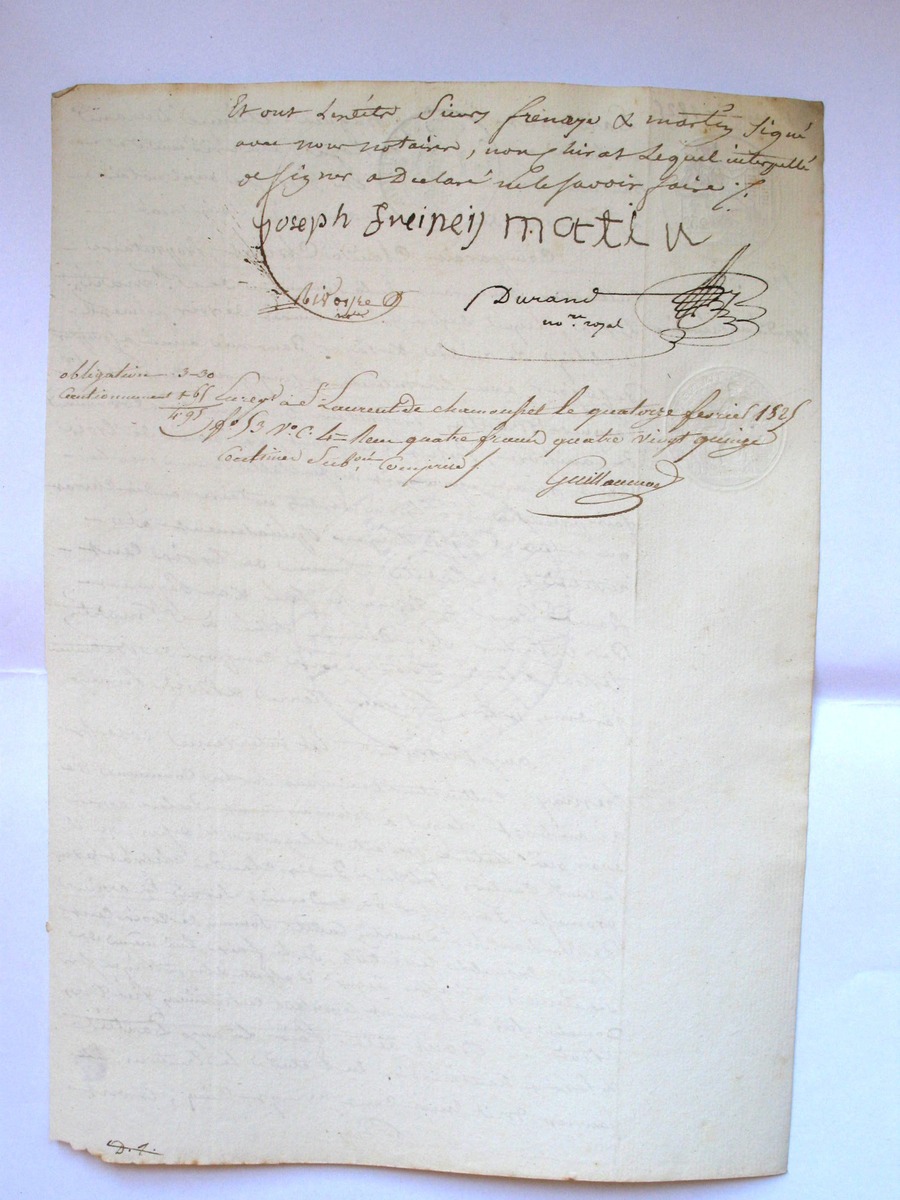 Et ont lesdits Sieurs frenaye & martin Signé
avec nous notaires, non chirat lequel interpellé
de Signer a Déclaré ne le Savoir faire ./.
joseph freineis matin
Rivoyre
nore
Durand
no.re royal
obligation 3-30
Cautionnement 1-65
4-95
Enreg.é à St Laurent de chamousset le quatorze fevrier 1825
fo 53 Vo C. 4 Reçu quatre francs quatre vingt quinze
Centimes Subon Comprise /
Guillaumot
D. 1.